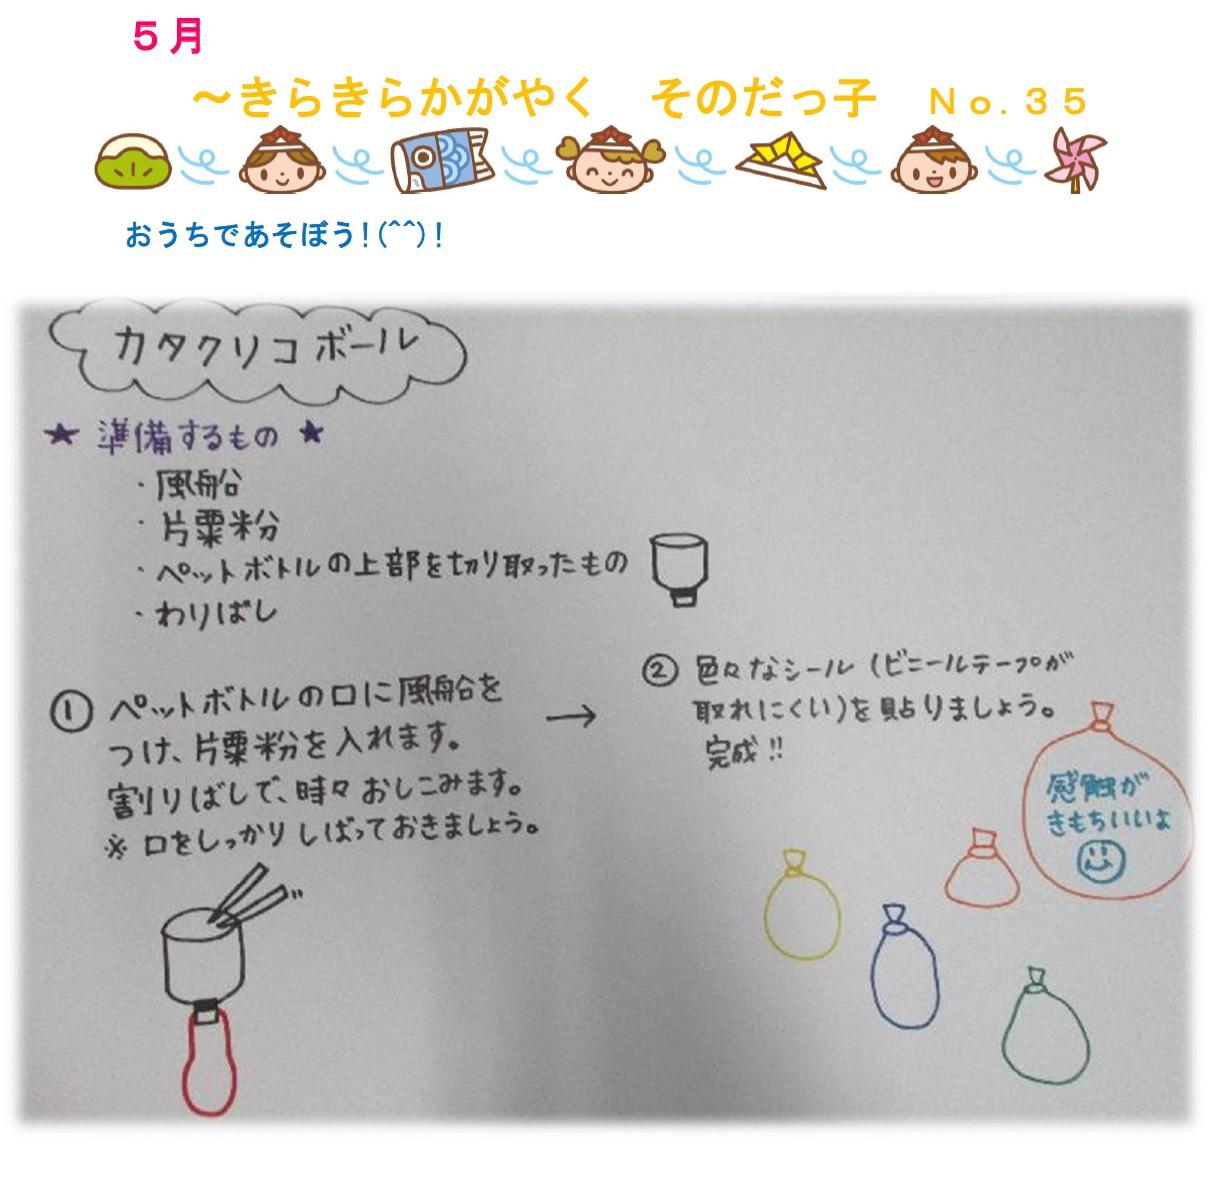 ５月
～きらきらかがやく　そのだっ子　Ｎｏ.３５
おうちであそぼう!(^^)!
カタクリコボール
★ 準備するもの ★
・風船
・片栗粉
・ペットボトルの上部を切り取ったもの
・わりばし
① ペットボトルの口に風船を
つけ、片栗粉を入れます。
割りばしで、時々おしこみます。
※ 口をしっかりしばっておきましょう。
→
② 色々なシール（ビニールテープが
取れにくい）を貼りましょう。
完成!!
感触が
きもちいいよ